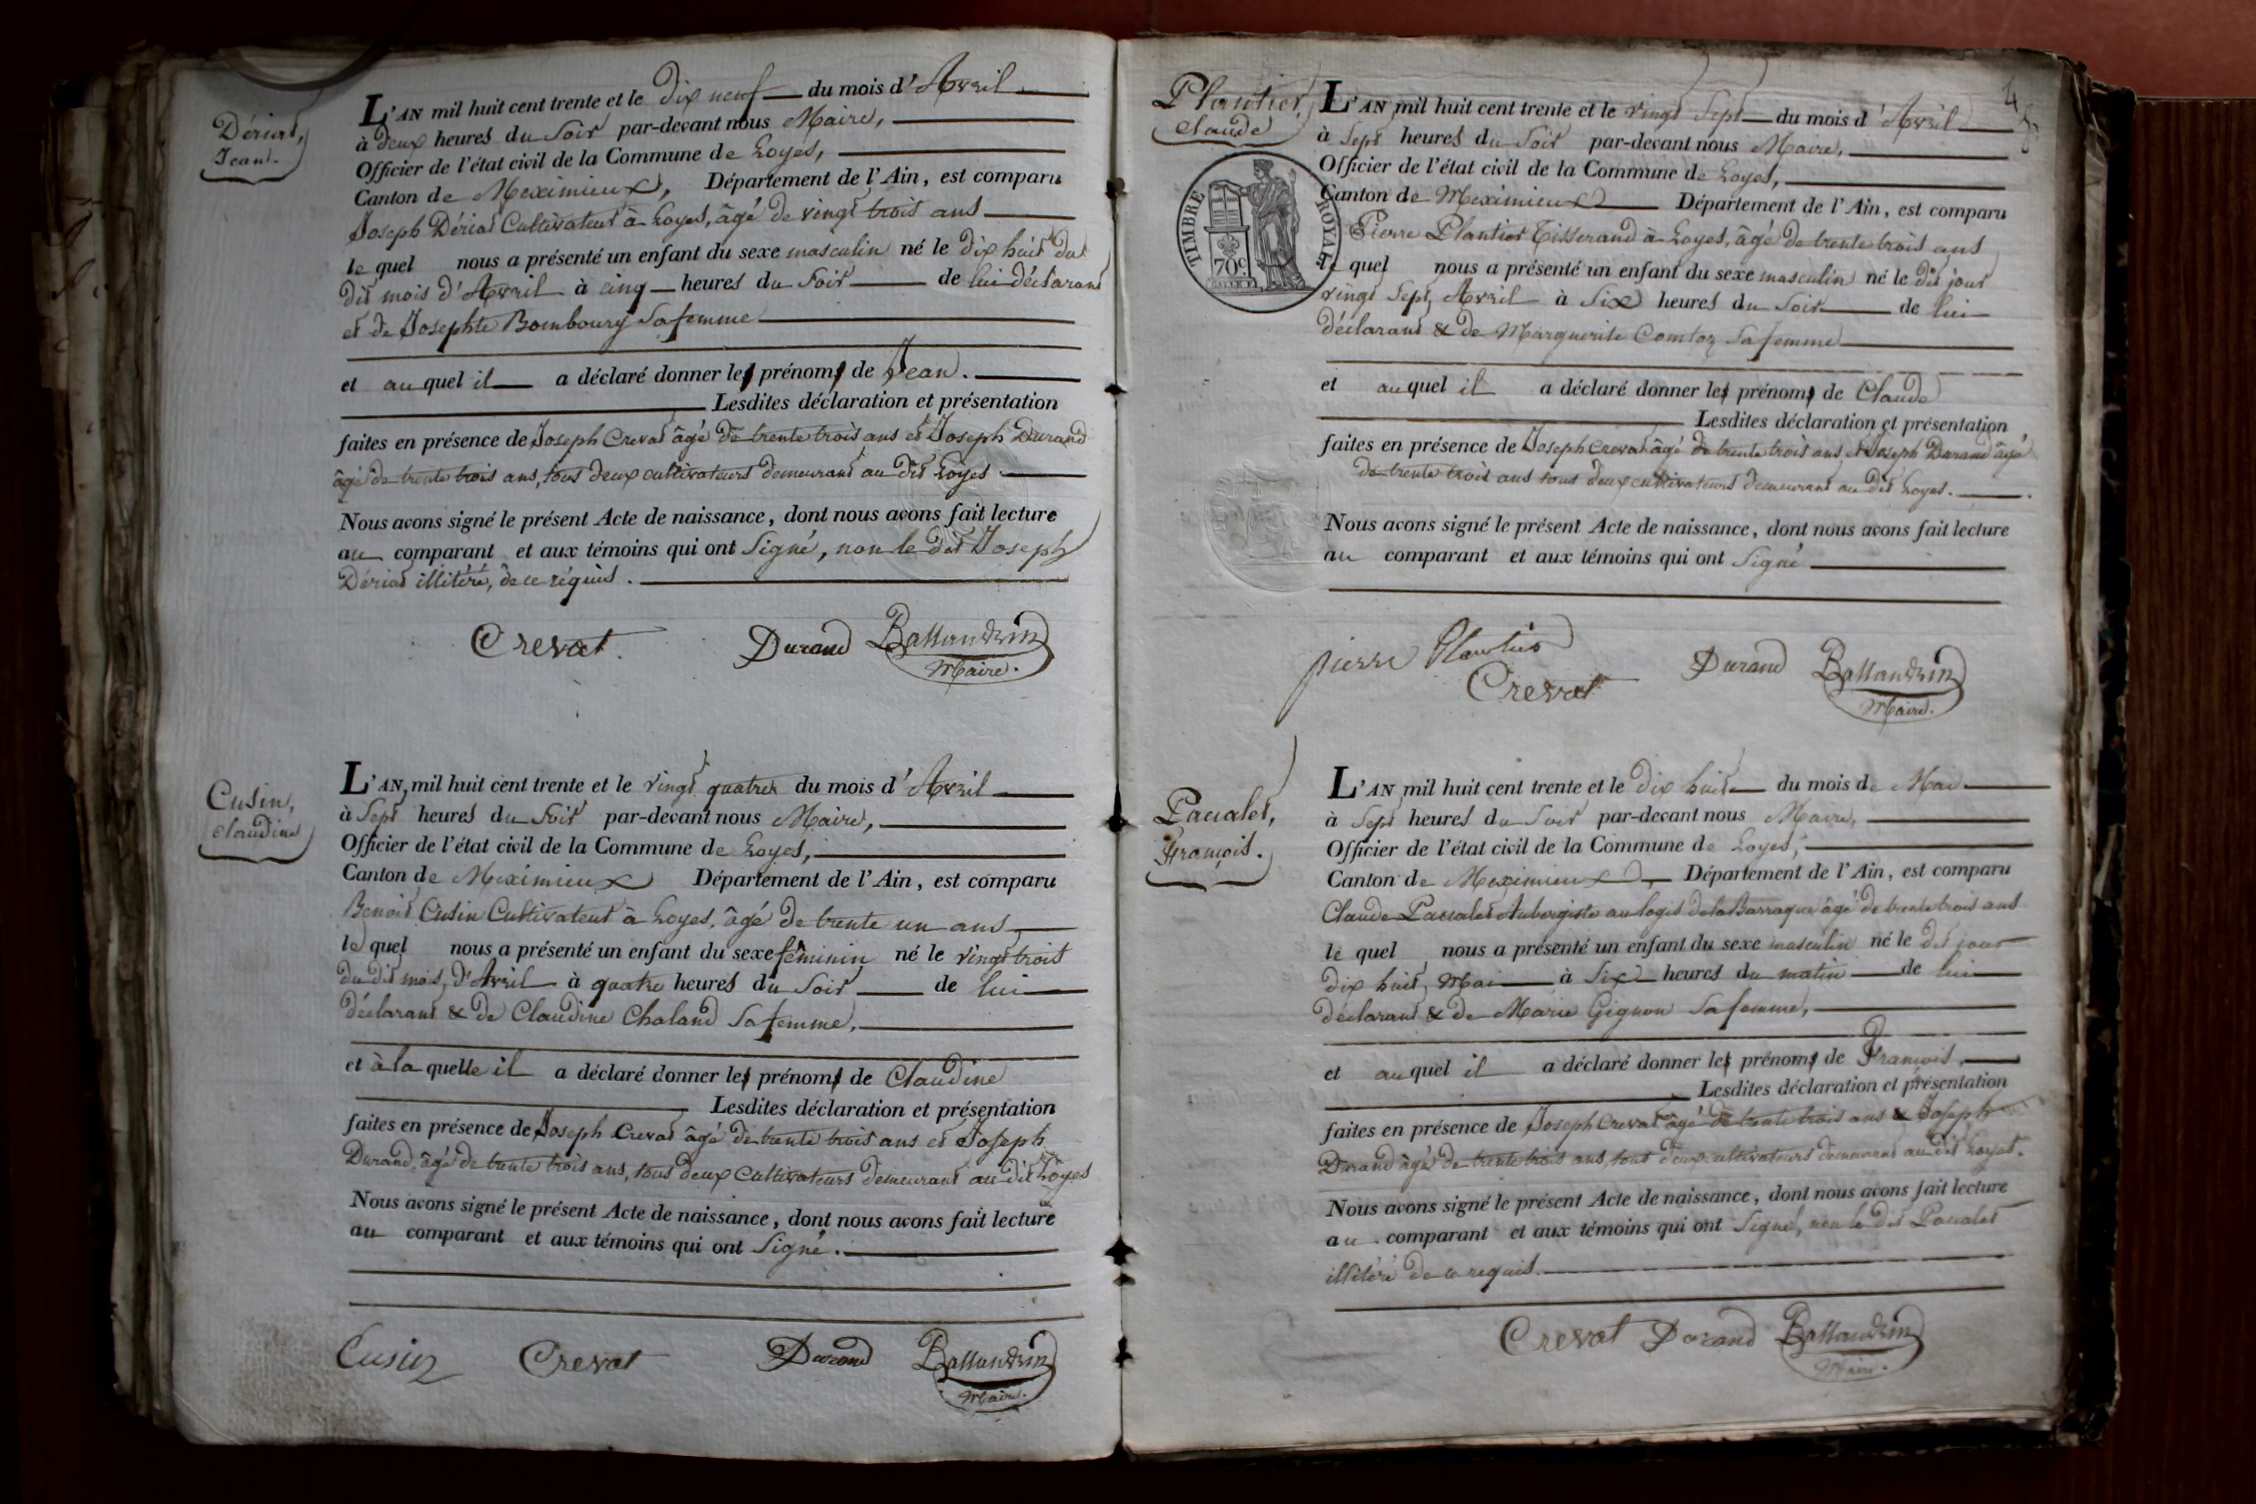 Dériat,
Jean.
L'AN mil huit cent trente et le dix neuf du mois d'Avril
à deux heures du Soir par-devant nous Maire,
Officier de l'état civil de la Commune de Loyes,
Canton de Meximieux, Département de l'Ain, est comparu
Joseph Dériat Cultivateur à Loyes, âgé de vingt trois ans
le quel nous a présenté un enfant du sexe masculin né le dix huit du
dit mois d'Avril à cinq heures du Soir de lui déclarant
et de Josephte Bomboury Sa femme
et au quel il a déclaré donner les prénoms de Jean.
Lesdites déclaration et présentation
faites en présence de Joseph Crevat âgé de trente trois ans et Joseph Durand
âgé de trente trois ans, tous deux cultivateurs demeurant au dit Loyes
Nous avons signé le présent Acte de naissance, dont nous avons fait lecture
au comparant et aux témoins qui ont Signé, non le dit Joseph
Dériat illitéré, de ce réquis.
Crevat Durand Ballandrin
Maire.
Cusin,
Claudine
L'AN mil huit cent trente et le vingt quatre du mois d'Avril
à Sept heures du Soir par-devant nous Maire,
Officier de l'état civil de la Commune de Loyes,
Canton de Meximieux Département de l'Ain, est comparu
Benoit Cusin Cultivateur à Loyes, âgé de trente un ans,
le quel nous a présenté un enfant du sexe féminin né le vingt trois
du dit mois d'Avril à quatre heures du Soir de lui
déclarant & de Claudine Chaland Sa femme,
et à la quelle il a déclaré donner les prénoms de Claudine
Lesdites déclaration et présentation
faites en présence de Joseph Crevat âgé de trente trois ans et Joseph
Durand, âgé de trente trois ans, tous deux Cultivateurs demeurant au dit Loyes
Nous avons signé le présent Acte de naissance, dont nous avons fait lecture
au comparant et aux témoins qui ont Signé.
Cusin Crevat Durand Ballandrin
Maire.
4
Plantier,
Claude
TIMBRE ROYAL
70c
L'AN mil huit cent trente et le vingt Sept du mois d'Avril
à Sept heures du Soir par-devant nous Maire,
Officier de l'état civil de la Commune de Loyes,
Canton de Meximieux Département de l'Ain, est comparu
Pierre Plantier Tisserand à Loyes, âgé de trente trois ans
le quel nous a présenté un enfant du sexe masculin né le dit jour
vingt Sept Avril à Six heures du Soir de lui
déclarant & de Marguerite Comtoz Sa femme
et au quel il a déclaré donner les prénoms de Claude
Lesdites déclaration et présentation
faites en présence de Joseph Crevat âgé de trente trois ans et Joseph Durand âgé
de trente trois ans tous deux cultivateurs demeurant au dit Loyes.
Nous avons signé le présent Acte de naissance, dont nous avons fait lecture
au comparant et aux témoins qui ont Signé
pierre Plantier
Crevat Durand Ballandrin
Maire.
Pacalet,
François.
L'AN mil huit cent trente et le dix huit du mois de Mai
à Sept heures du Soir par-devant nous Maire,
Officier de l'état civil de la Commune de Loyes,
Canton de Meximieux, Département de l'Ain, est comparu
Claude Pacalet Aubergiste au logis de la Barraque, âgé de trente trois ans
le quel nous a présenté un enfant du sexe masculin né le dit jour
dix huit Mai à Six heures du matin de lui
déclarant & de Marie Gignon Sa femme,
et au quel il a déclaré donner les prénoms de François,
Lesdites déclaration et présentation
faites en présence de Joseph Crevat âgé de trente trois ans & Joseph
Durand âgé de trente trois ans, tout deux cultivateurs demeurant au dit Loyes.
Nous avons signé le présent Acte de naissance, dont nous avons fait lecture
au comparant et aux témoins qui ont Signé, non le dit Pacalet
illitéré de ce requis.
Crevat Durand Ballandrin
Maire.